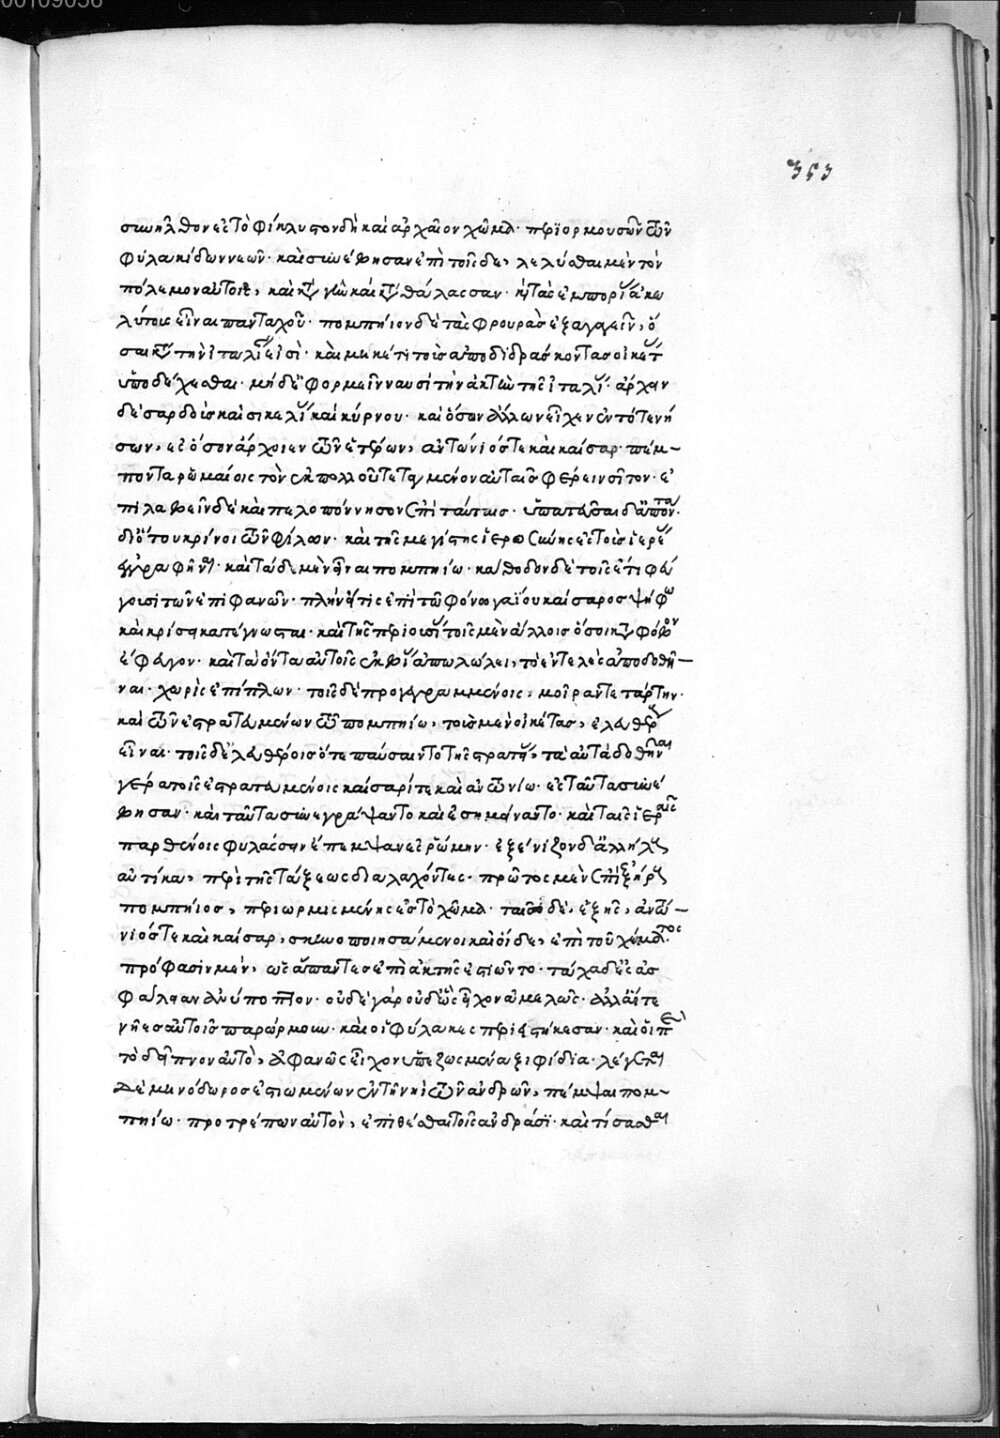 353
συνῆλθον ἐς τὸ ἀμφίκλυστον δὴ καὶ ἀρχαῖον χῶμα· περιορμουσῶν τῶν
φυλακίδων νεῶν· καὶ συνέβησαν ἐπὶ τοῖσδε, λελύσθαι μὲν τὸν
πόλεμον αὐτοῖς, καὶ κατὰ γῆν καὶ κατὰ θάλασσαν· καὶ τὰς ἐμπορίας ἀκω
λύτους εἶναι πανταχοῦ· πομπήιον δὲ τὰς φρουρὰς ἐξαγαγεῖν, ὅ
σαι κατὰ τὴν ἰταλίαν εἰσὶ· καὶ μηκέτι τοὺς ἀποδιδράσκοντας οἰκέτας
ὑποδέχεσθαι· μηδὲ ἐφορμεῖν ναυσὶ τὴν ἀκτὴν τῆς ἰταλίας· ἄρχειν
δὲ σαρδοῦς καὶ σικελίας καὶ κύρνου· καὶ ὅσων ἄλλων εἶχεν ἐν τότε νή
σων, ἐς ὅσον ἄρχοιεν τῶν ἑτέρων, ἀντώνιός τε καὶ καῖσαρ· πέμ-
ποντα ῥωμαίοις τὸν ἐκ πολλοῦ τεταγμένον αὐταῖς φέρειν σῖτον· ἐ
πιλαβεῖν δὲ καὶ πελοπόννησον ἐπὶ ταύταις· ὑπατεῦσαι δ' ἀπόντα·
δι' ὅτου κρίνοι τῶν φίλων· καὶ τῆς μεγίστης ἱερωσύνης ἐς τοὺς ἱερέας
ἐγγραφῆναι· καὶ τάδε μὲν εἶναι πομπηίω· κάθοδον δὲ τοῖς ἔτι φεύ
γουσι τῶν ἐπιφανῶν· πλὴν εἴ τις ἐπὶ τῶ φόνω γαΐου καίσαρος ψήφω
καὶ κρίσει κατέγνωσται· καὶ τῆς περιουσίας τοῖς μὲν ἄλλοις ὅσοι κατὰ φόβον
ἔφευγον· καὶ τὰ ὄντα αὐτοῖς ἐκ βίας ἀπωλώλει, τὸ ἐντελὲς ἀποδοθῆ-
ναι· χωρὶς ἐπίπλων· τοῖς δὲ προγεγραμμένοις, μοῖραν τετάρτην·
καὶ τῶν ἐστρατευμένων τῶ πομπηίω, τοὺς μὲν οἰκέτας, ἐλευθέρους
εἶναι· τοῖς δὲ ἐλευθέροις ὅτε παύσαιντο τῆς στρατείας, τὰ αὐτὰ δοθῆναι
γέρα τοῖς ἐστρατευμένοις καίσαρί τε καὶ ἀντωνίω· ἐς ταῦτα συνέ
βησαν· καὶ ταῦτα συνεγράψαντο καὶ ἐσημήναντο· καὶ ταῖς ἱεραῖς
παρθένοις φυλάσσειν ἔπεμψαν ἐς ῥώμην· ἐξένιζον δ' ἀλλήλους
αὐτίκα, περὶ τῆς τάξεως διαλαχόντες· πρῶτος μὲν ἐπὶ ἑξήρους
πομπήιος, περιωρμισμένης ἐς τὸ χῶμα· ταῖς δὲ, ἑξῆς, ἀντώ-
νιός τε καὶ καῖσαρ, σκηνοποιησάμενοι καὶ οἵδε, ἐπὶ τοῦ χώματος
πρόφασιν μὲν, ὡς ἅπαντες ἐπὶ ἀκτῆς ἑστιῶντο· τάχα δὲ ἐς ἀσ
φάλειαν ἀνύποπτον· οὐδὲ γὰρ οὐδ' ὣς εἶχον ἀμελῶς· ἀλλ' αἵ τε
νῆες αὐτοῖς παρώρμουν· καὶ οἱ φύλακες περιεστήκεσαν· καὶ οἱ περὶ
τὸ δεῖπνον αὐτὸ, ἀφανῶς εἶχον ὑπεζωσμένα ξιφίδια· λέγεται
δὲ μηνόδωρος ἑστιωμένων ἐν τῆ νηὶ τῶν ἀνδρῶν, πέμψαι πομ-
πηίω· προτρέπων αὐτὸν, ἐπιθέσθαι τοῖς ἀνδράσι· καὶ τίσασθαι